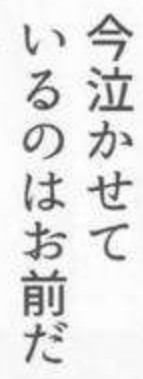 今泣かせて
いるのはお前だ